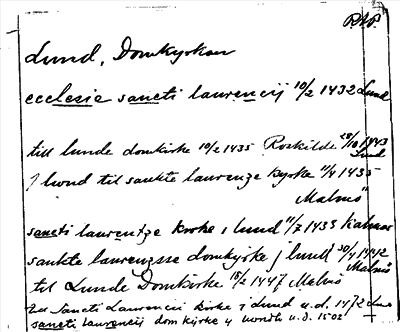 Lund, Domkyrkan
ecclesie sancti laurencij 10/2 1432 Lund
till lunde domkirke 10/2 1435 Roskilde 28/10 1443 Lund
J lwnd til sankte laurenze kyrke 11/4 1435
Malmö
sancti laurentze kirke i lund 11/7 1438 Kalmar
sankte laurensse domkyrke j lund 30/4 1442
Malmö
til Lunde Domkirke 15/2 1447 Malmö
Sancti Laurencii kirke i Lund u.d. 1472
sancti laurencij domkirke u.d. 1502